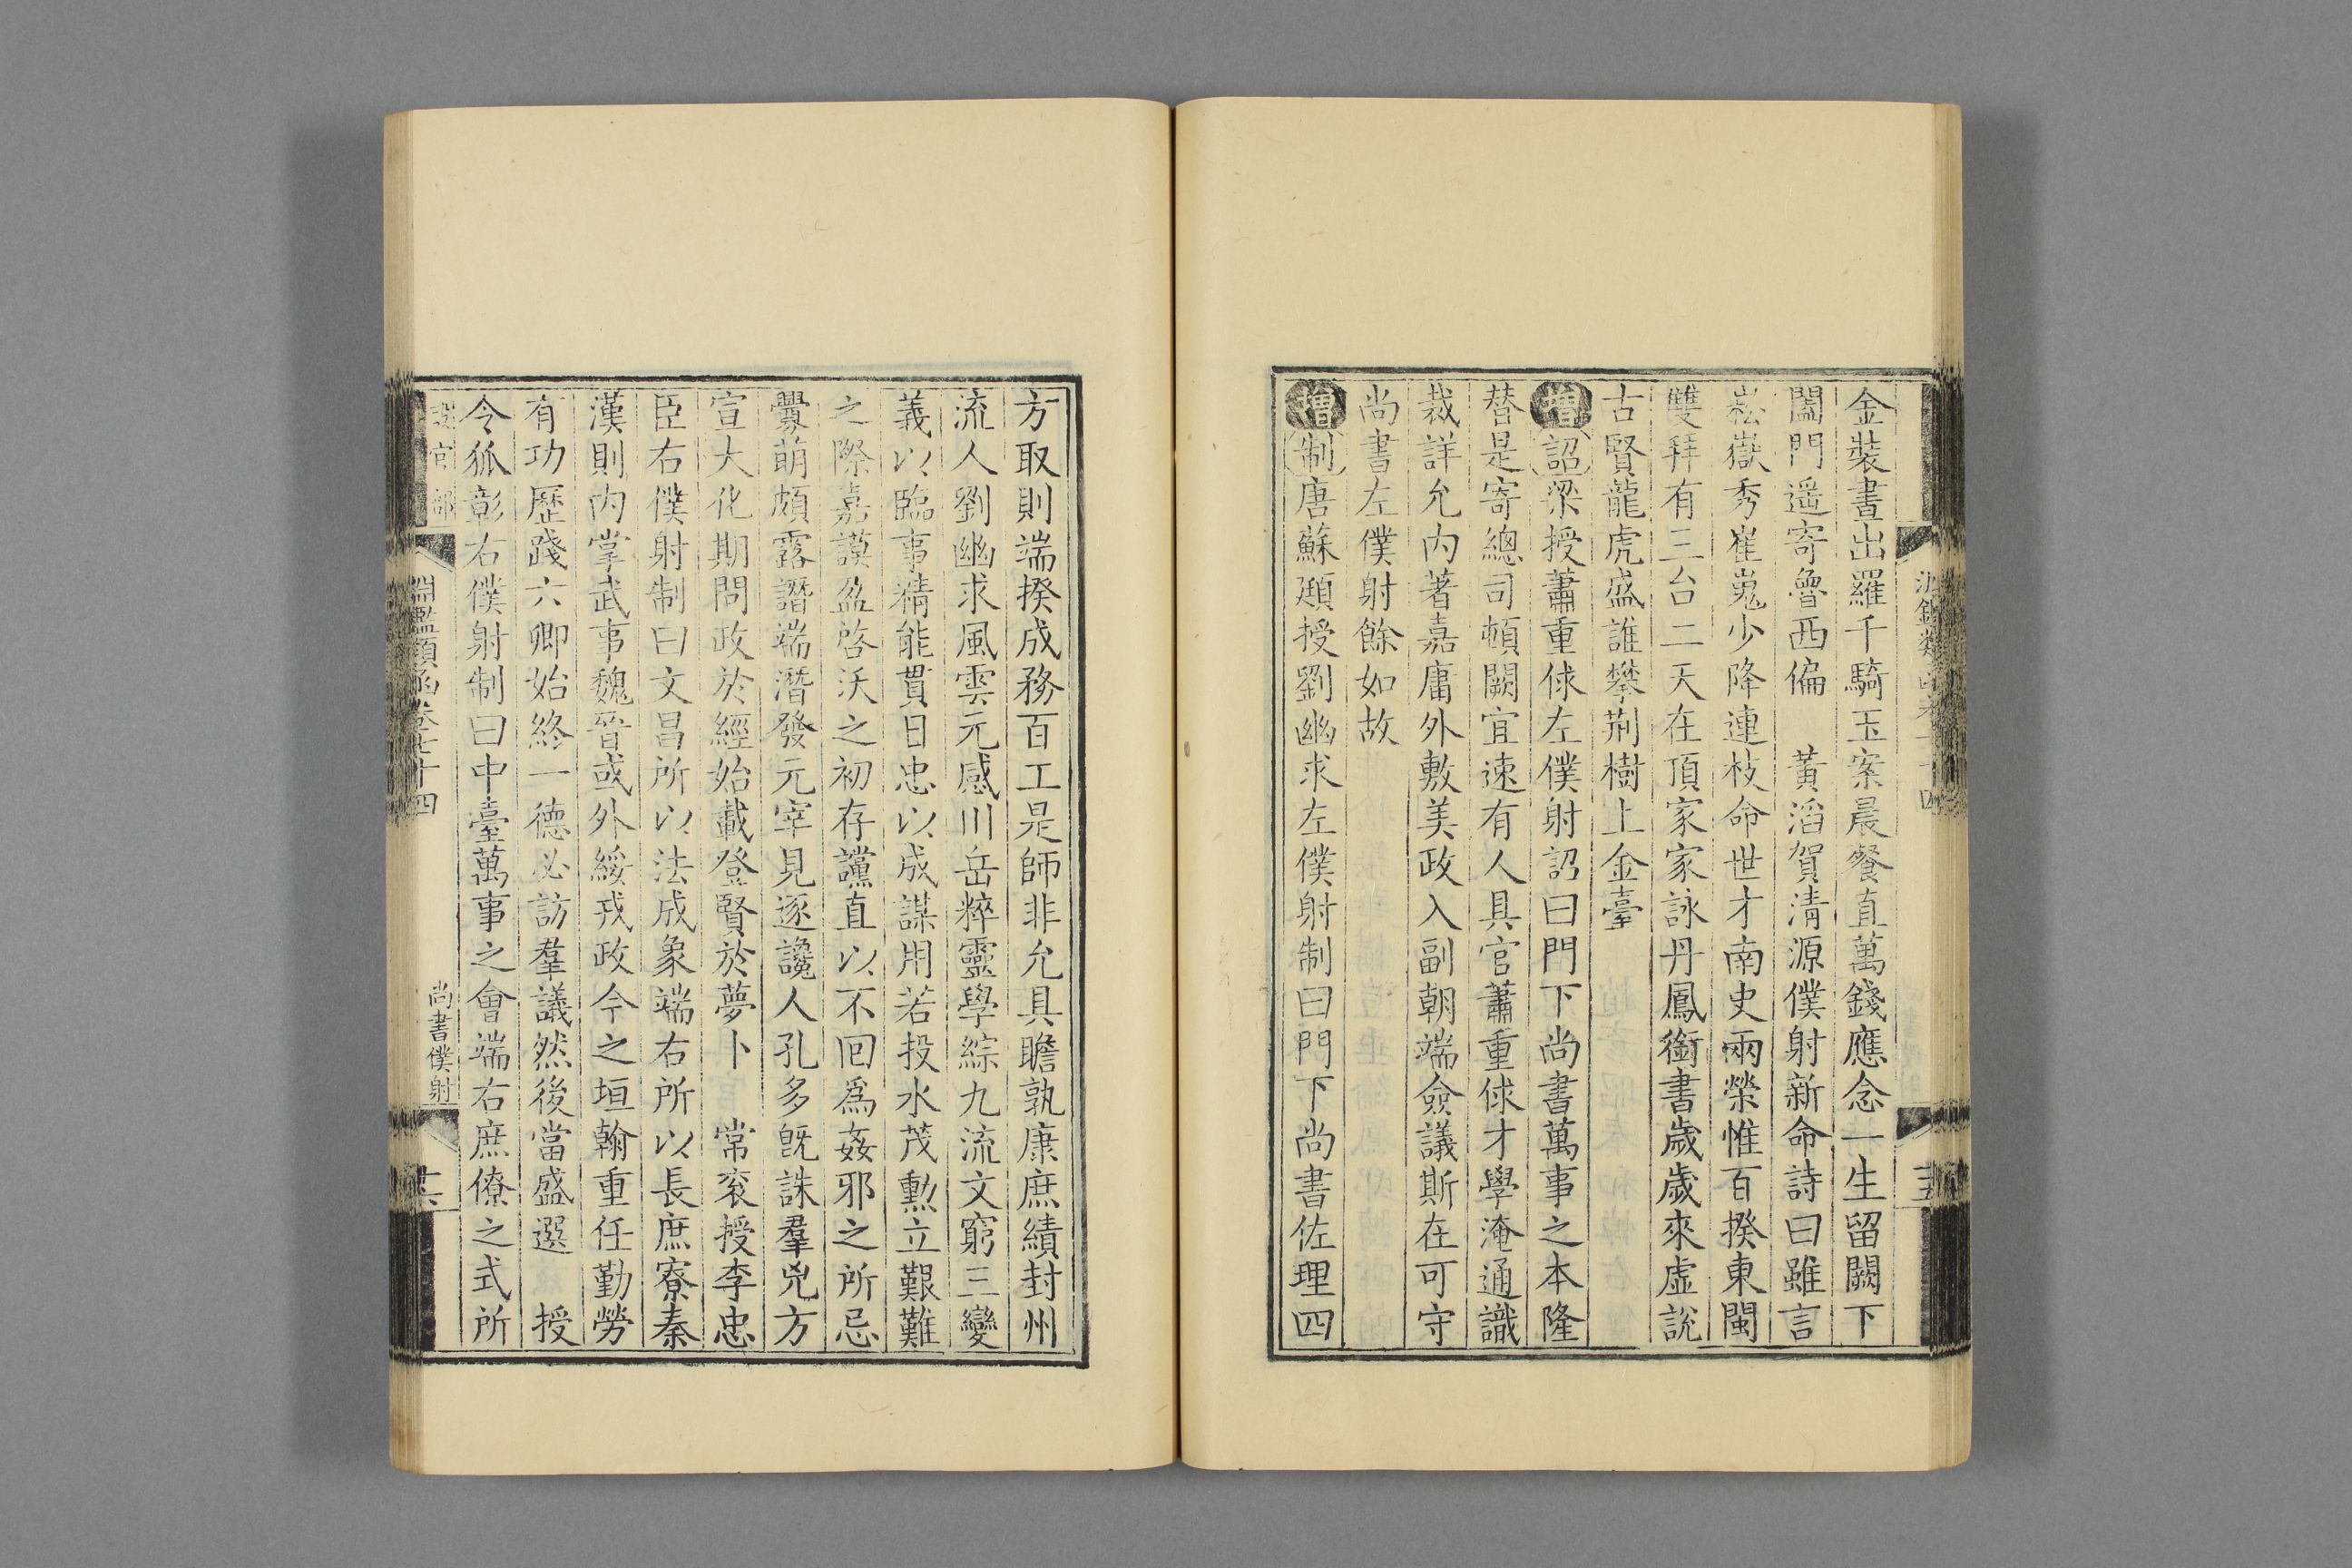 金裝書出羅千騎玉案晨餐直萬錢應念一生留闕下
闔門遥寄魯西偏　黃滔賀清源僕射新命詩曰雖言
崧嶽秀崔嵬少降連枝命世才南史兩榮惟百揆東閩
雙拜有三台二天在頂家家詠丹鳳銜書歲歲來虛説
古賢龍虎盛誰攀荆樹上金臺
增詔梁授蕭重俅左僕射詔曰門下尚書萬事之本隆
替是寄總司頓闕宜速有人具官蕭重俅才學淹通識
裁詳允内著嘉庸外敷美政入副朝端僉議斯在可守
尚書左僕射餘如故
增制唐蘇頲授劉幽求左僕射制曰門下尚書佐理四
方取則端揆成務百工是師非允具瞻孰康庶績封州
流人劉幽求風雲元感川岳粹靈學綜九流文窮三變
義以臨事精能貫日忠以成謀用若投水茂勲立艱難
之際嘉謨盈啓沃之初存讜直以不回爲姦邪之所忌
釁萌頗露譖端潛發元宰見逐讒人孔多旣誅羣兇方
宣大化期問政於經始載登賢於夢卜　常衮授李忠
臣右僕射制曰文昌所以法成象端右所以長庶寮秦
漢則内掌武事魏晉或外綏戎政今之垣翰重任勤勞
有功歷踐六卿始終一德必訪羣議然後當盛選　授
令狐彰右僕射制曰中臺萬事之會端右庶僚之式所
設官部
淵鑑類函卷七十四
尚書僕射
十六